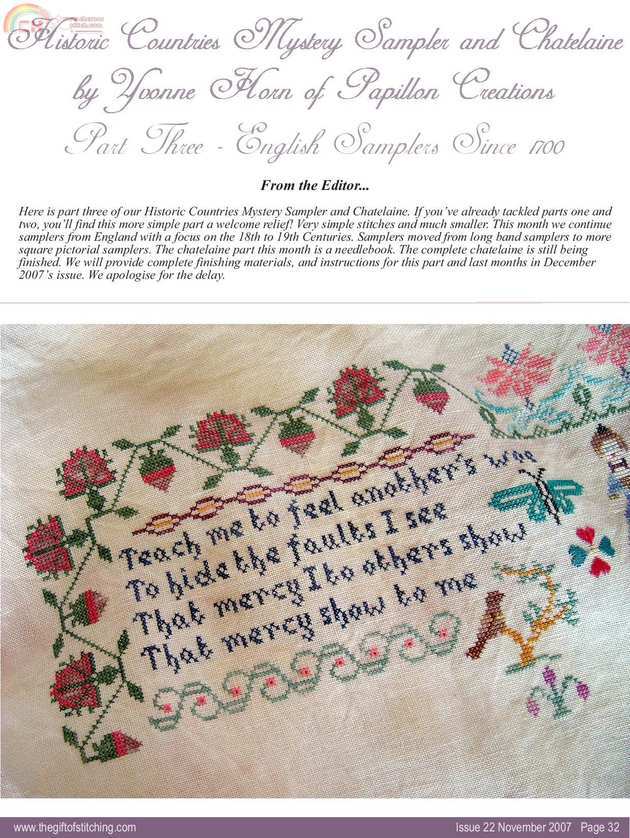 Historic Countries Mystery Sampler and Chatelaine
by Yvonne Horn of Papillon Creations
Part Three - English Samplers Since 1700
From the Editor...
Here is part three of our Historic Countries Mystery Sampler and Chatelaine. If you've already tackled parts one and
two, you'll find this more simple part a welcome relief! Very simple stitches and much smaller. This month we continue
samplers from England with a focus on the 18th to 19th Centuries. Samplers moved from long band samplers to more
square pictorial samplers. The chatelaine part this month is a needlebook. The complete chatelaine is still being
finished. We will provide complete finishing materials, and instructions for this part and last months in December
2007's issue. We apologise for the delay.
Teach me to feel another's woe
To hide the faults I see
That mercy I to others show
That mercy show to me
www.thegiftofstitching.com
Issue 22 November 2007 Page 32